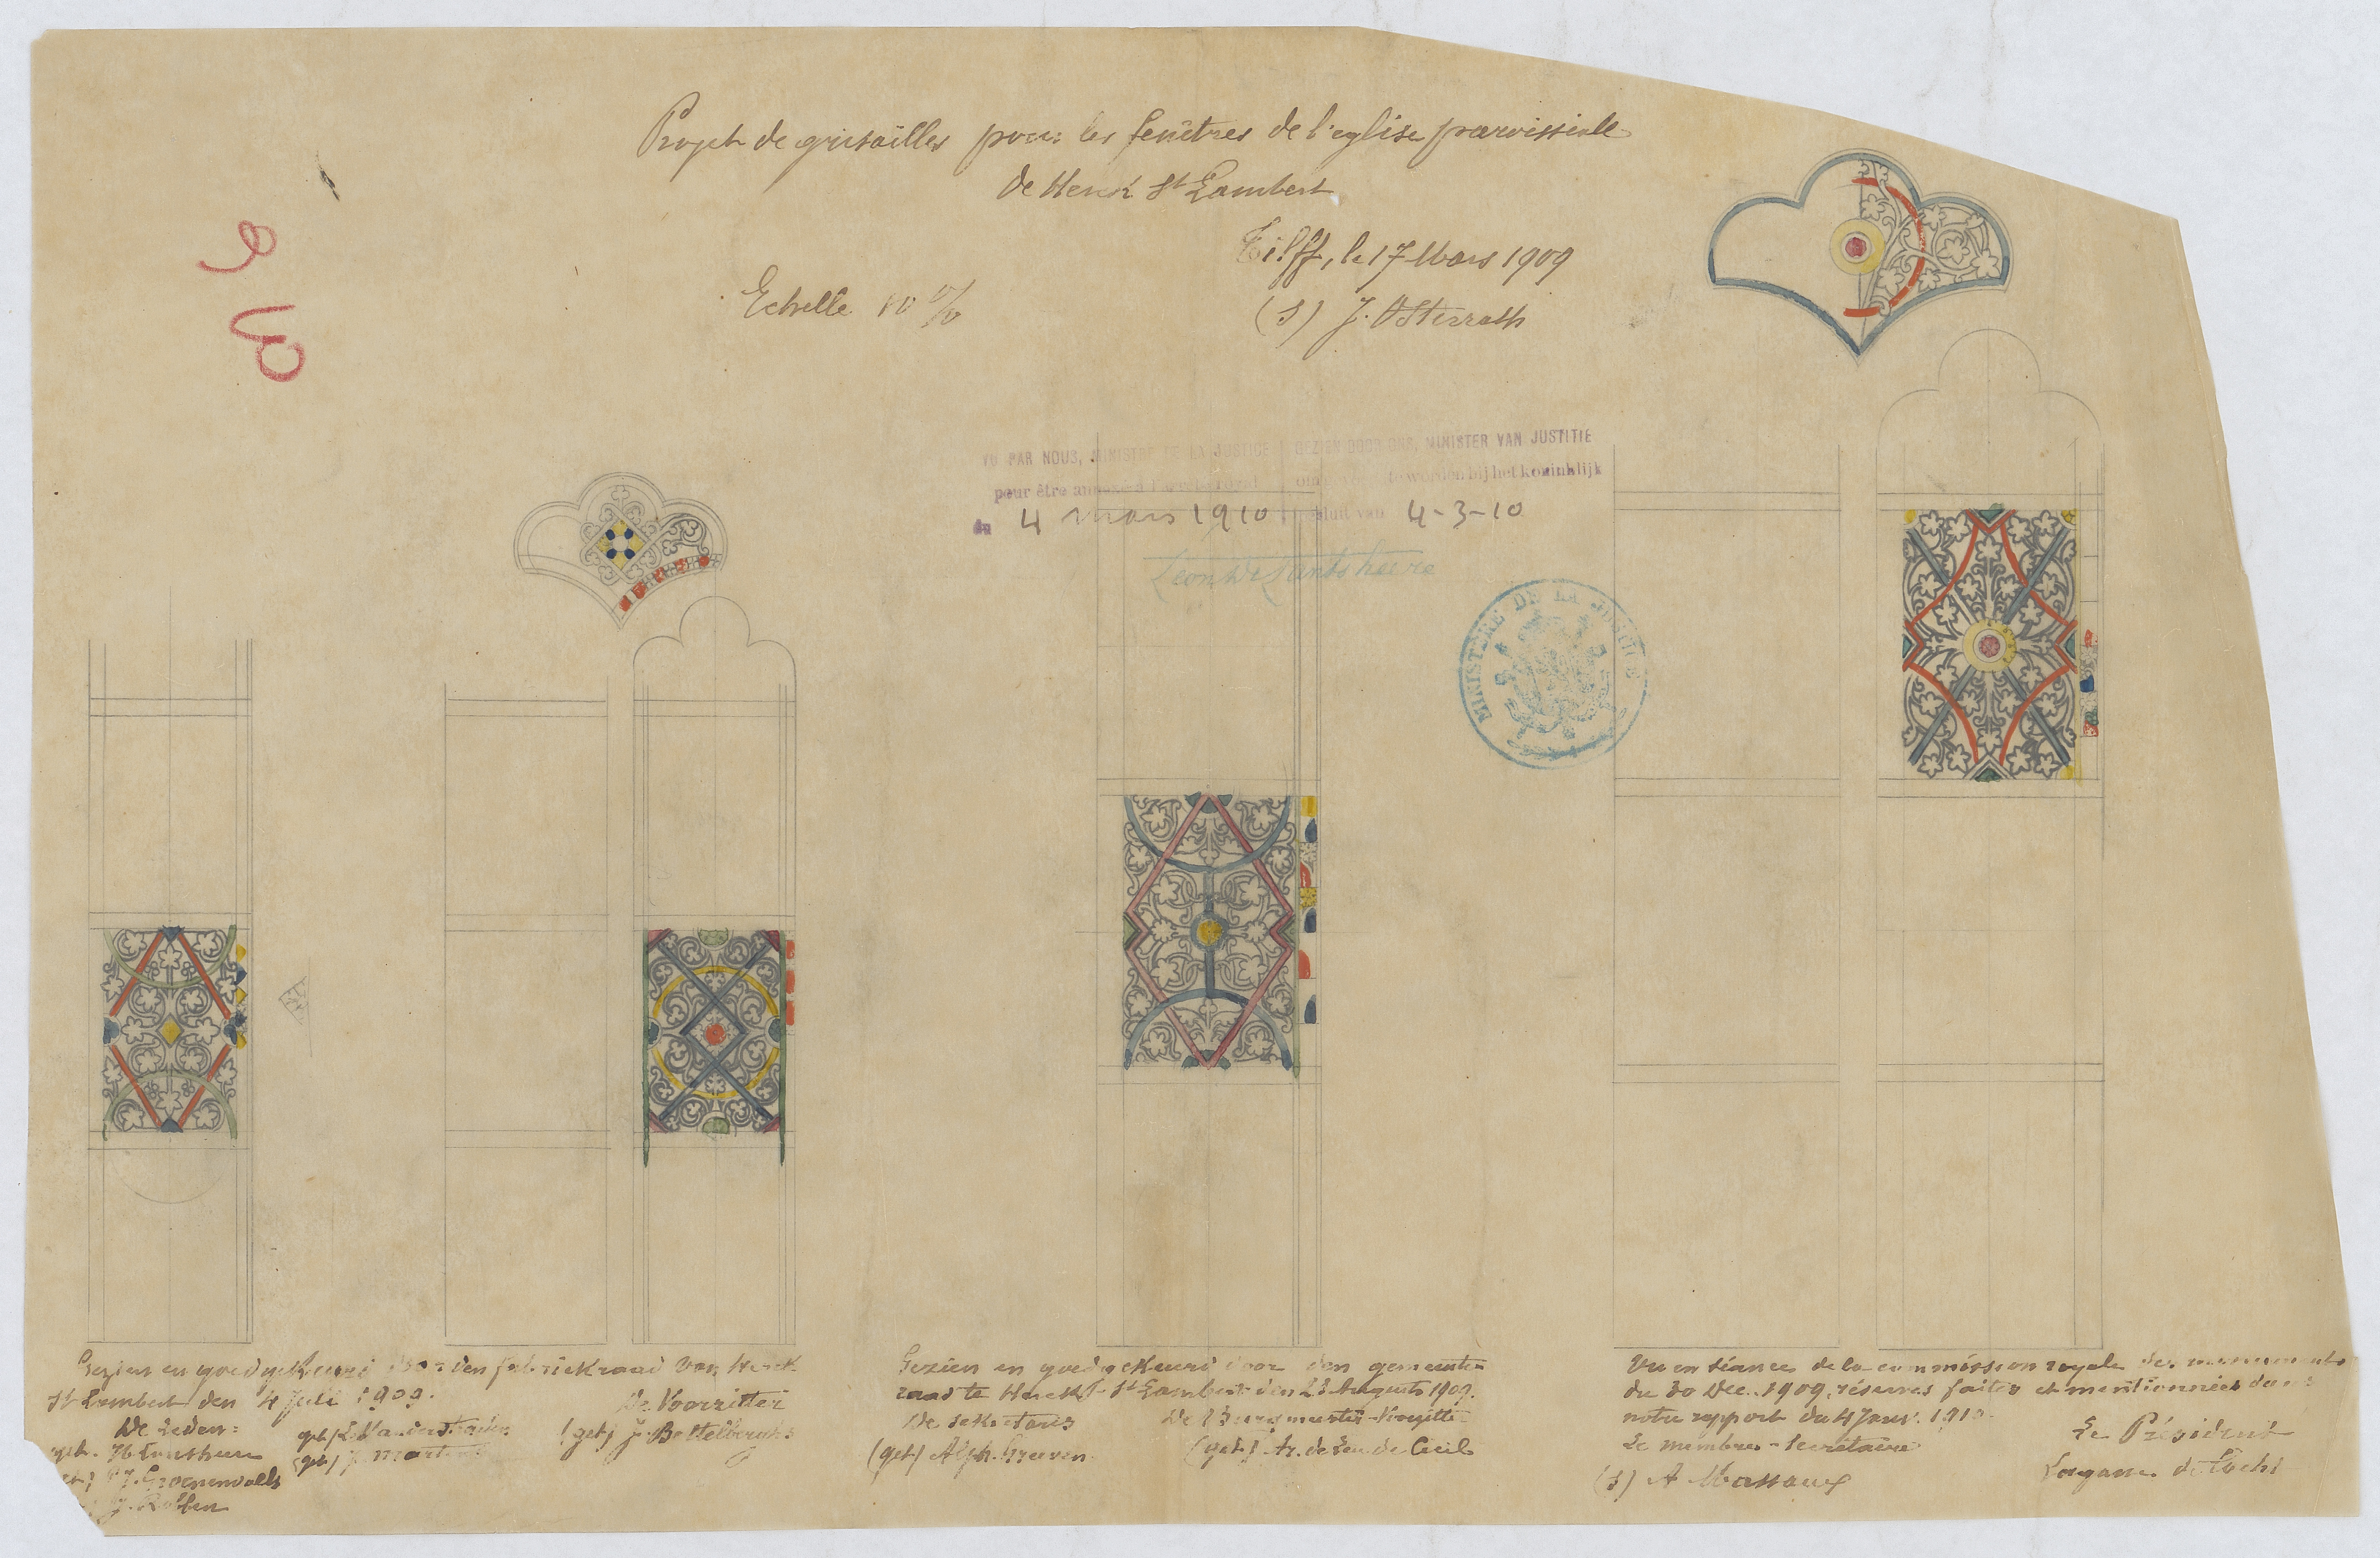 Projet de grisailles pour les fenêtres de l'eglise paroissiale
de Herck St Lambert
Tilff, le 17 Mars 1909
Echelle 10 %
(s) J. Osterrath
VU PAR NOUS, MINISTRE DE LA JUSTICE
pour être annexé à l'arrêté royal
du 4 mars 1910
GEZIEN DOOR ONS, MINISTER VAN JUSTITIE
om te worden bij het koninklijk
sluit van 4-3-10
Leon De Lantsheere
MINISTÈRE DE LA JUSTICE
Gezien en goedgekeurd door den fabriekraad van Herck
St Lambert den 4 Juli 1909.
De Leden:
De Voorzitter
(get) J. Martens
(get) J. Bettelberghs
J. Robben
Gezien en goedgekeurd door den gemeente
raad te Herck St Lambert den 28 Augusti 1909.
De sekretaris
De Burgmeester-Voorzitter
(get) Alph. Greeven
(get) Ar. de Leu de Cecil
Vu en séance de la commission royale des monuments
du 30 Dec. 1909, réserves faites et mentionnées dans
notre rapport du 4 Janv. 1910.
Le membre-Secrétaire
Le Président
(s) A Massaux
Lagasse de Locht